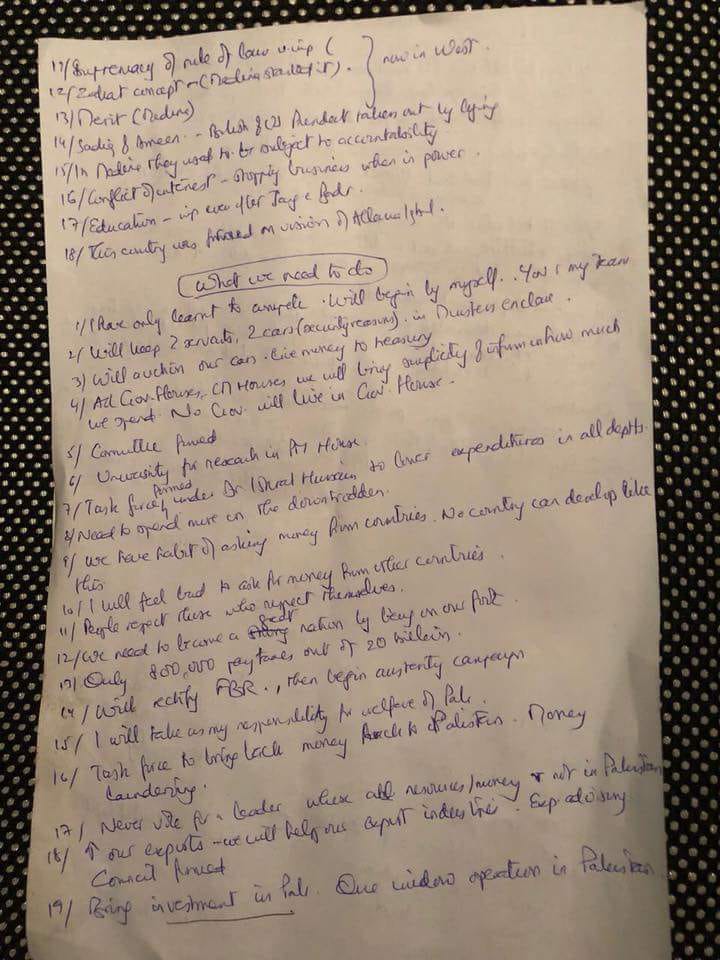 11/ Supremacy of rule of law using (
12/ Zakat concept - (Medina started it).
} now in West.
13/ Merit (Medina)
14/ Sadiq & Ameen - British & US President taken out by lying
15/ In Medina they used to be subject to accountability
16/ Conflict of interest - stopping business when in power.
17/ Education - imp even after Jang e Badr.
18/ This country was formed on vision of Allama Iqbal.
What we need to do
1/ I have only learnt to compete. Will begin by myself.. You & my team
2/ Will keep 2 servants, 2 cars (security reasons). in Ministers enclave.
3) Will auction our cars. Give money to treasury
4/ All Gov. Houses, CM Houses we will bring simplicity & inform on how much
we spend. No Gov. will live in Gov. House.
5/ Committee formed
6/ University for research in PM House.
7/ Task force formed under Dr Ishrat Hussain to lower expenditures in all depths.
8/ Need to spend more on the downtrodden.
9/ We have habit of asking money from countries. No country can develop like
this
10/ I will feel bad to ask for money from other countries.
11/ People respect those who respect themselves.
12/ We need to become a great nation by being on our feet.
13/ Only 800,000 pay taxes out of 20 million.
14/ Will rectify FBR.., then begin austerity campaign
15/ I will take as my responsibility for welfare of Pak.
16/ Task force to bring back money back to Pakistan. Money
laundering.
17/ Never vote for a leader whose all resources/money not in Pakistan
18/ ↑ our exports - we will help our export industries. Exp advising
Council formed
19/ Bring investment in Pak. One window operation in Pakistan.